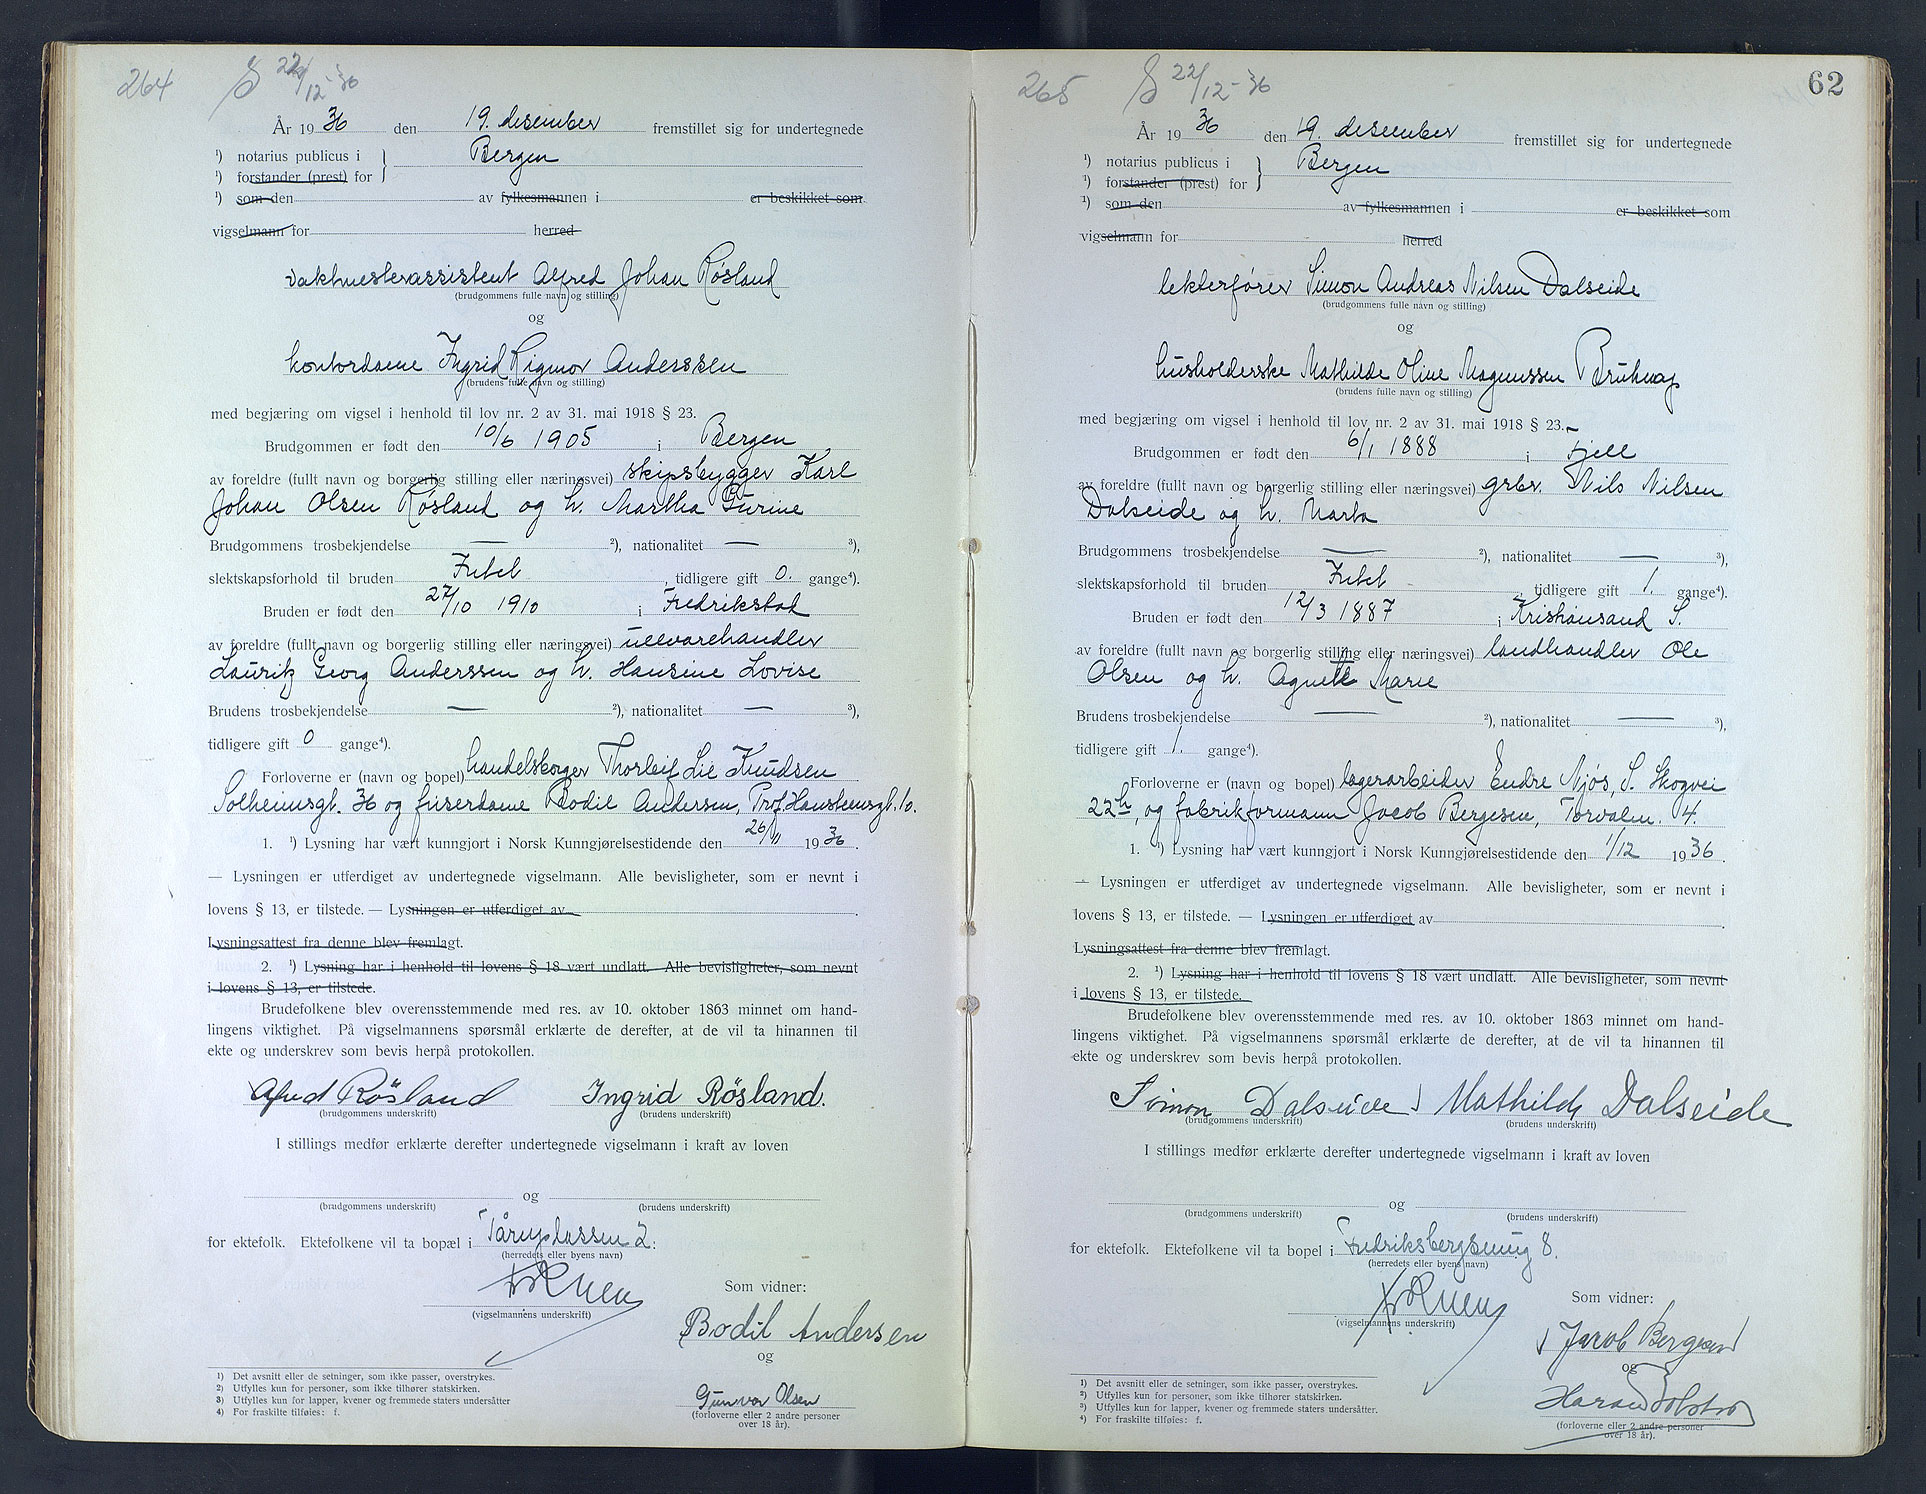 264 S 22/12-36
År 1936 den 19. desember fremstillet sig for undertegnede
¹) notarius publicus i } Bergen
¹) forstander (prest) for
¹) som den av fylkesmannen i er beskikket som
vigselmann for herred
vaktmesterassistent Alfred Johan Røsland
(brudgommens fulle navn og stilling)
og
kontordame Ingrid Rigmor Anderssen
(brudens fulle navn og stilling)
med begjæring om vigsel i henhold til lov nr. 2 av 31. mai 1918 § 23.
Brudgommen er født den 10/6 1905 i Bergen
av foreldre (fullt navn og borgerlig stilling eller næringsvei) skipsbygger Karl
Johan Olsen Røsland og h. Martha Gurine
Brudgommens trosbekjendelse — ²), nationalitet — ³),
slektskapsforhold til bruden Intet, tidligere gift 0. gange⁴).
Bruden er født den 27/10 1910 i Fredrikstad
av foreldre (fullt navn og borgerlig stilling eller næringsvei) ullvarehandler
Lauritz Georg Anderssen og h. Hansine Lovise
Brudens trosbekjendelse — ²), nationalitet — ³),
tidligere gift 0 gange⁴).
Forloverne er (navn og bopel) handelsborger Thorleif Lie Knudsen
Solheimsgt. 36 og friserdame Bodil Andersen, Prof. Hansteensgt. 10.
1. ¹) Lysning har vært kunngjort i Norsk Kunngjørelsestidende den 26/11 1936.
— Lysningen er utferdiget av undertegnede vigselmann. Alle bevisligheter, som er nevnt i
lovens § 13, er tilstede. — Lysningen er utferdiget av
Lysningsattest fra denne blev fremlagt.
2. ¹) Lysning har i henhold til lovens § 18 vært undlatt. Alle bevisligheter, som nevnt
i lovens § 13, er tilstede.
Brudefolkene blev overensstemmende med res. av 10. oktober 1863 minnet om hand-
lingens viktighet. På vigselmannens spørsmål erklærte de derefter, at de vil ta hinannen til
ekte og underskrev som bevis herpå protokollen.
Alfred Røsland Ingrid Røsland.
(brudgommens underskrift) (brudens underskrift)
I stillings medfør erklærte derefter undertegnede vigselmann i kraft av loven
og
(brudgommens underskrift) (brudens underskrift)
for ektefolk. Ektefolkene vil ta bopæl i Tårnplassen 2.
(herredets eller byens navn)
Som vidner:
(vigselmannens underskrift)
Bodil Andersen
og
Gunvor Olsen
(forloverne eller 2 andre personer
over 18 år).
1) Det avsnitt eller de setninger, som ikke passer, overstrykes.
2) Utfylles kun for personer, som ikke tilhører statskirken.
3) Utfylles kun for lapper, kvener og fremmede staters undersåtter
4) For fraskilte tilføies: f.
265 S 22/12-36 62
År 1936 den 19. desember fremstillet sig for undertegnede
¹) notarius publicus i } Bergen
¹) forstander (prest) for
¹) som den av fylkesmannen i er beskikket som
vigselmann for herred
lekterfører Simon Andreas Nilsen Dalseide
(brudgommens fulle navn og stilling)
og
husholderske Mathilde Oline Magnussen Bruknap
(brudens fulle navn og stilling)
med begjæring om vigsel i henhold til lov nr. 2 av 31. mai 1918 § 23.
Brudgommen er født den 6/1 1888 i Fjell
av foreldre (fullt navn og borgerlig stilling eller næringsvei) grbr. Nils Nilsen
Dalseide og h. Marta
Brudgommens trosbekjendelse — ²), nationalitet — ³),
slektskapsforhold til bruden Intet, tidligere gift 1. gange⁴).
Bruden er født den 12/3 1887 i Kristiansand S.
av foreldre (fullt navn og borgerlig stilling eller næringsvei) landhandler Ole
Olsen og h. Agnette Marie
Brudens trosbekjendelse — ²), nationalitet — ³),
tidligere gift 1. gange⁴).
Forloverne er (navn og bopel) lagerarbeider Endre Njøs, S. Skogvei
22h, og fabrikformann Jacob Bergesen, Torvalm. 14.
1. ¹) Lysning har vært kunngjort i Norsk Kunngjørelsestidende den 1/12 1936.
— Lysningen er utferdiget av undertegnede vigselmann. Alle bevisligheter, som er nevnt i
lovens § 13, er tilstede. — Lysningen er utferdiget av
Lysningsattest fra denne blev fremlagt.
2. ¹) Lysning har i henhold til lovens § 18 vært undlatt. Alle bevisligheter, som nevnt
i lovens § 13, er tilstede.
Brudefolkene blev overensstemmende med res. av 10. oktober 1863 minnet om hand-
lingens viktighet. På vigselmannens spørsmål erklærte de derefter, at de vil ta hinannen til
ekte og underskrev som bevis herpå protokollen.
Simon Dalseide Mathilde Dalseide
(brudgommens underskrift) (brudens underskrift)
I stillings medfør erklærte derefter undertegnede vigselmann i kraft av loven
og
(brudgommens underskrift) (brudens underskrift)
for ektefolk. Ektefolkene vil ta bopel i Fredriksbergsmug 8.
(herredets eller byens navn)
Som vidner:
(vigselmannens underskrift)
Jacob Bergesen
og
(forloverne eller 2 andre personer
over 18 år).
¹) Det avsnitt eller de setninger, som ikke passer, overstrykes.
²) Utfylles kun for personer, som ikke tilhører statskirken.
³) Utfylles kun for lapper, kvener og fremmede staters undersåtter.
⁴) For fraskilte tilføies: f.